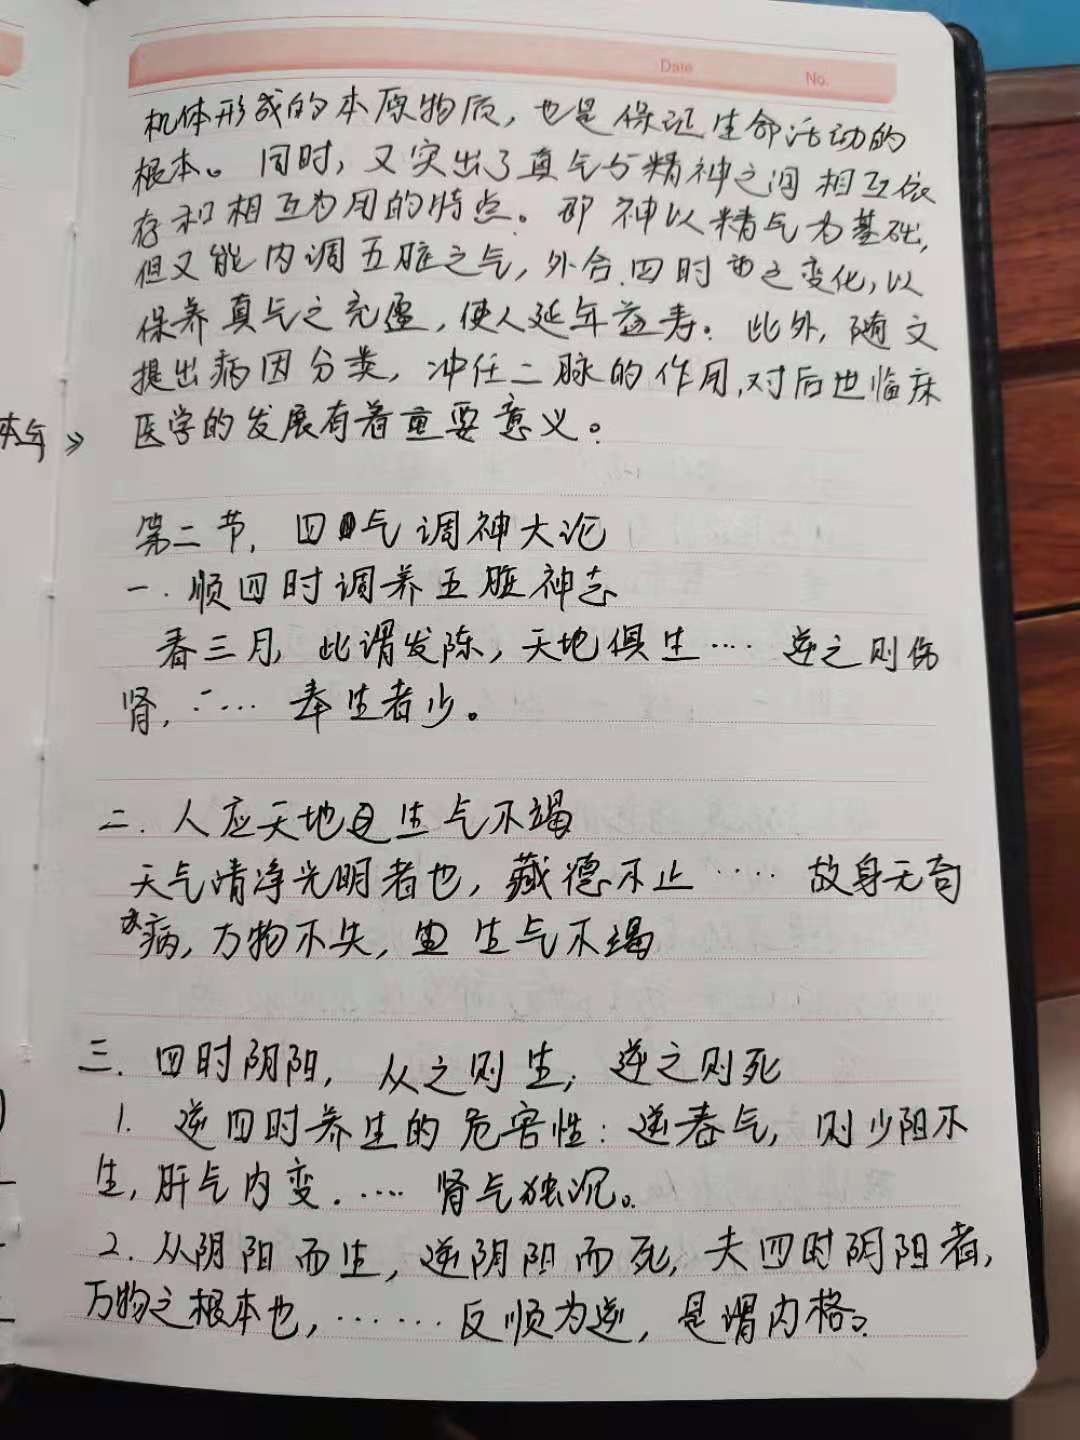 Date
No.
机体形成的本原物质，也是保证生命活动的
根本。同时，又突出了真气与精神之间相互依
存和相互为用的特点。即神以精气为基础，
但又能内调五脏之气，外合四时之变化，以
保养真气之充盈，使人延年益寿。此外，随文
提出病因分类，冲任二脉的作用，对后世临床
医学的发展有着重要意义。
本气》
第二节，四气调神大论
一．顺四时调养五脏神志
春三月，此谓发陈，天地俱生…. 逆之则伤
肾，…… 奉生者少。
二．人应天地生气不竭
天气清净光明者也，藏德不止 …. 故身无奇
病，万物不失，生气不竭
三．四时阴阳，从之则生；逆之则死
1．逆四时养生的危害性：逆春气，则少阳不
生，肝气内变．…. 肾气独沉。
2．从阴阳而生，逆阴阳而死，夫四时阴阳者，
万物之根本也，…… 反顺为逆，是谓内格。